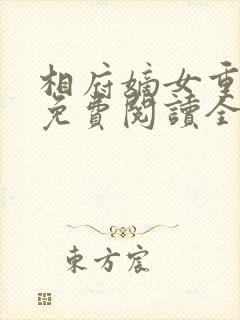 相府嫡女重
免費閱讀全
東方宸